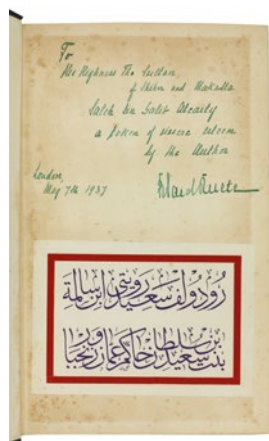 To
His Highness The Sultan,
of Shihr and Makalla
Saleh bin Galib Alcaity
a token of sincere esteem
by the Author
London,
May 7th 1937
Said Ruete
رودولف سعيد رويتي ابن سالمة
بنت سعيد بن سلطان حاكم عمان وزنجبار